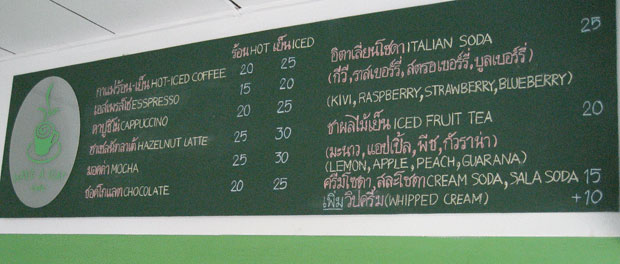 ร้อน HOT เย็น ICED
กาแฟร้อน-เย็น HOT-ICED COFFEE 20 25
เอสเพรสโซ่ ESSPRESSO 15 20
คาปูชิโน่ CAPPUCCINO 20 25
HAZELNUT LATTE 25 30
มอคค่า MOCHA 25 30
ช็อคโกแลต CHOCOLATE 20 25
อิตาเลียนโซดา ITALIAN SODA 25
(กีวี่, ราสเบอร์รี่, สตรอเบอร์รี่, บูลเบอร์รี่)
(KIVI, RASPBERRY, STRAWBERRY, BLUEBERRY)
ชาผลไม้เย็น ICED FRUIT TEA 20
(มะนาว, แอปเปิ้ล, พีช, กัวราน่า)
(LEMON, APPLE, PEACH, GUARANA)
ครีมโซดา, สละโซดา CREAM SODA, SALA SODA 15
เพิ่มวิปครีม (WHIPPED CREAM) +10